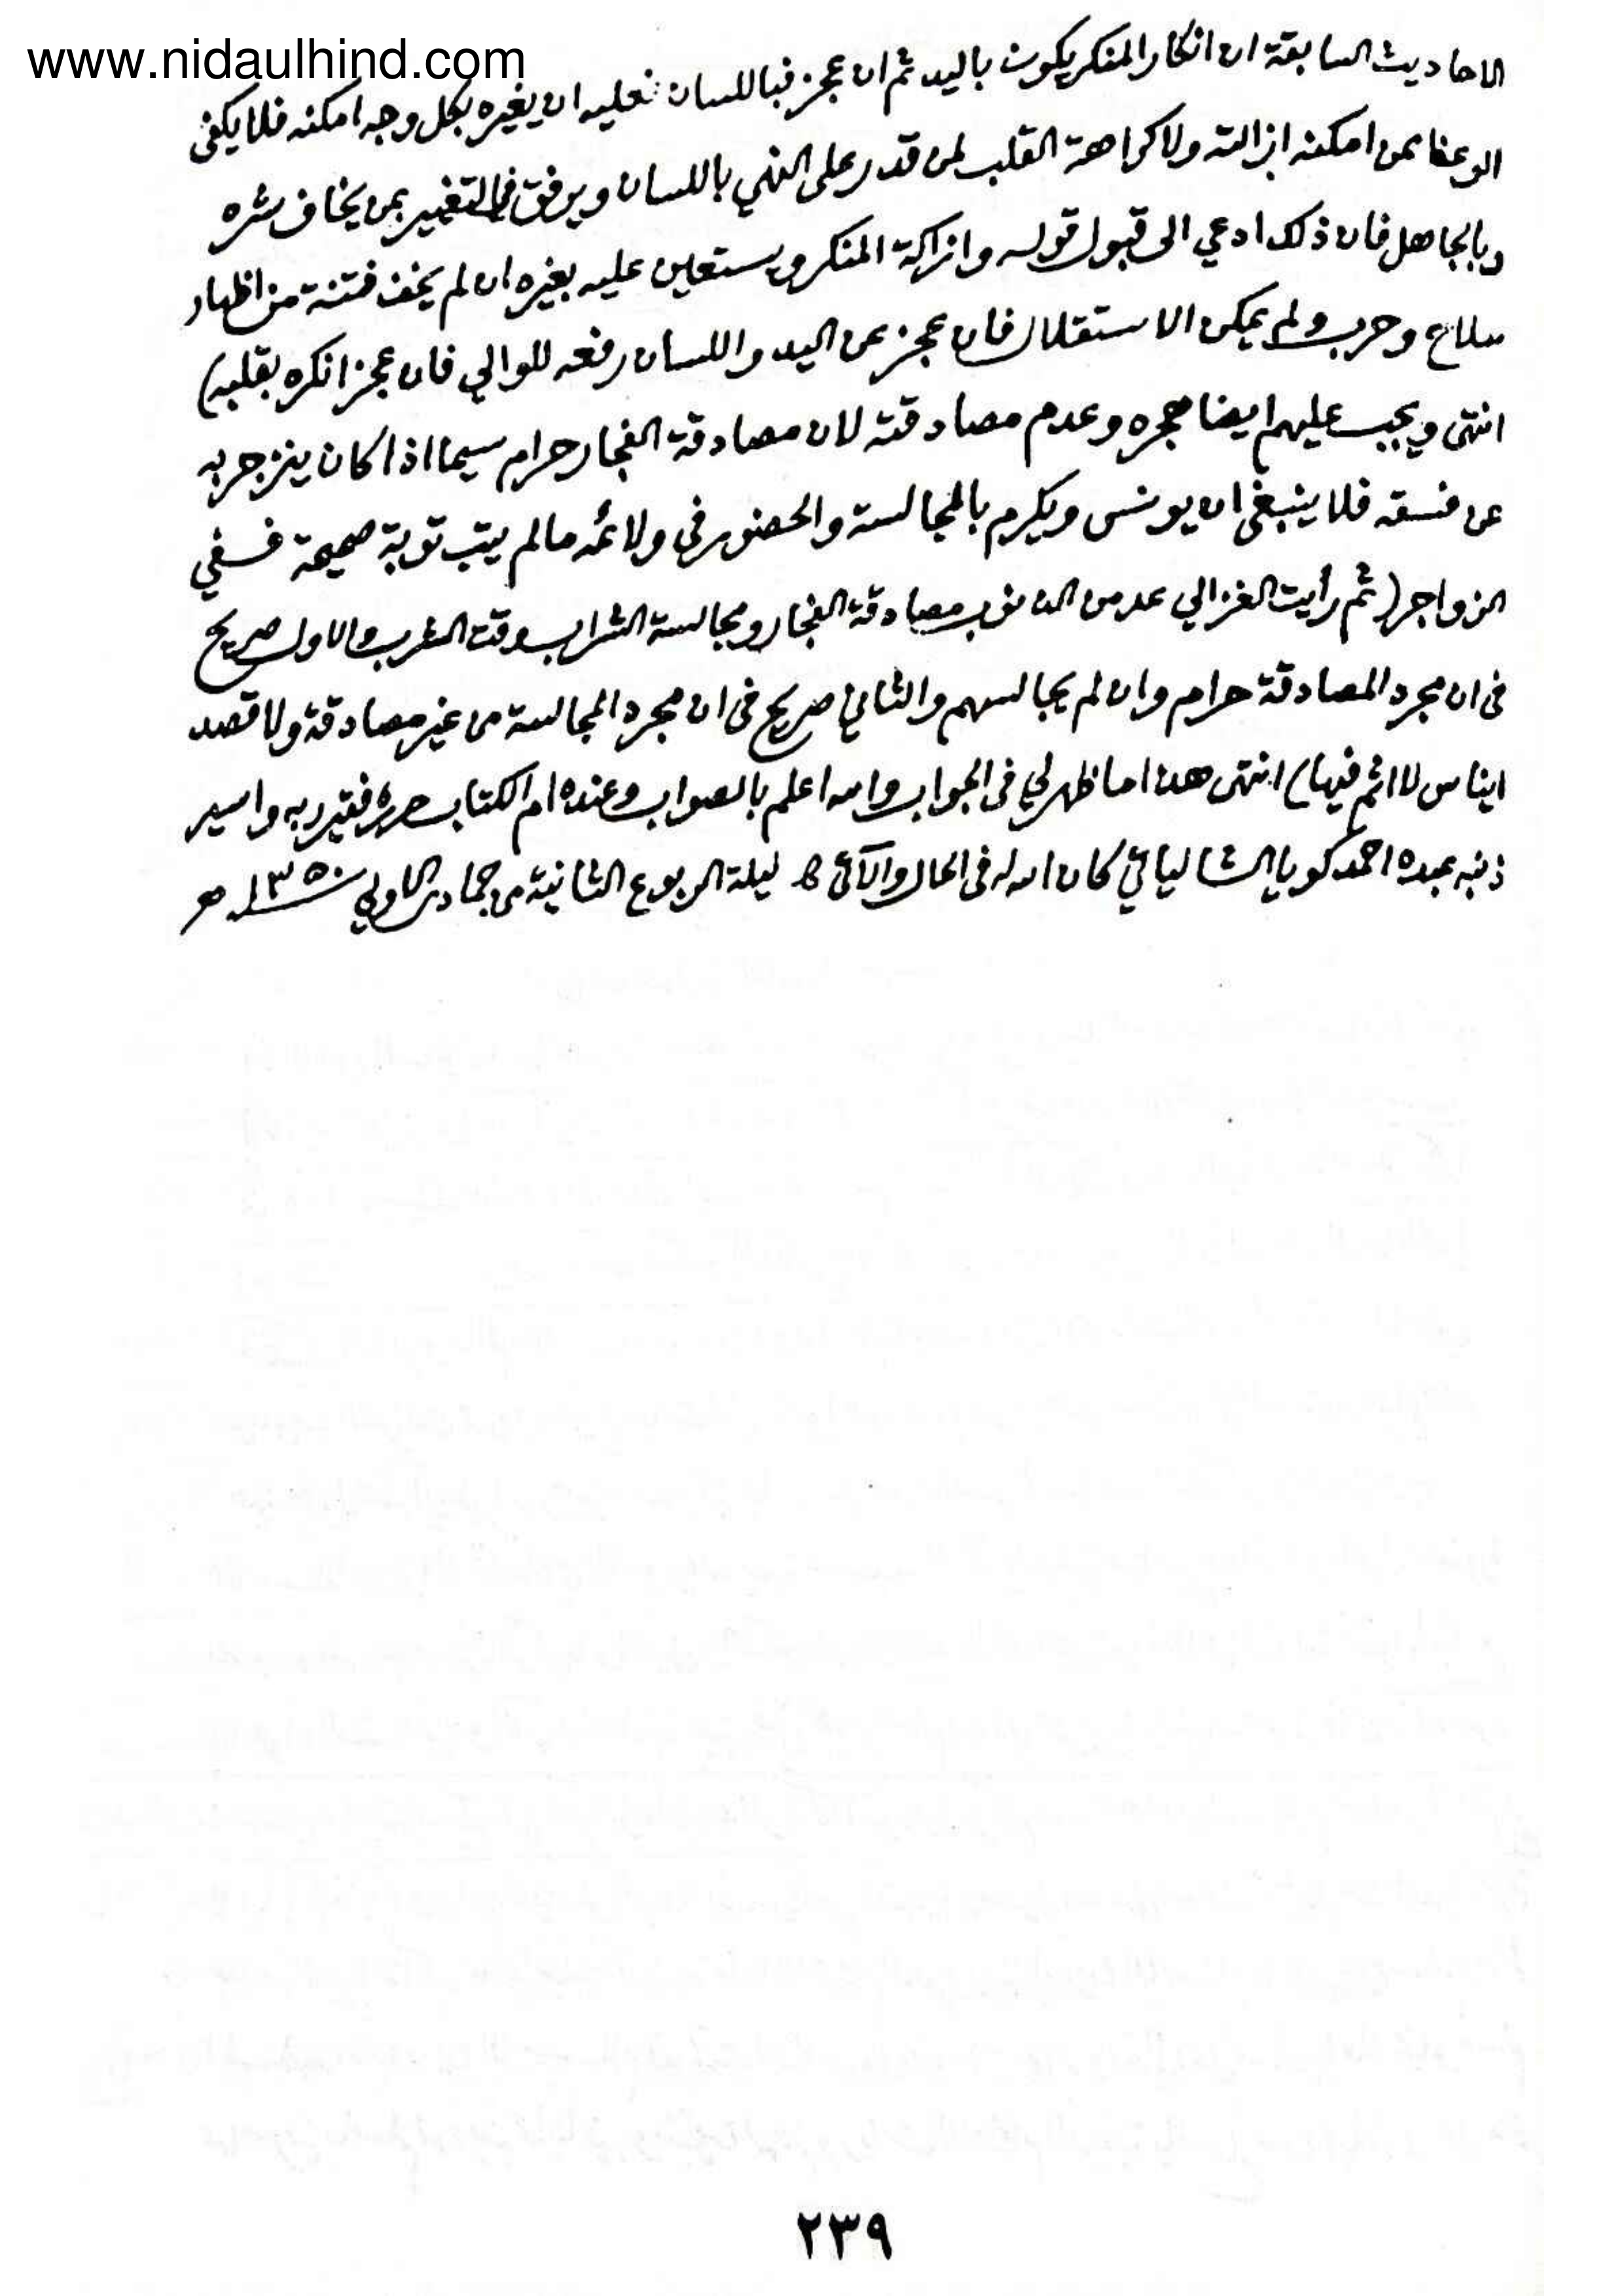 www.nidaulhind.com
الاحاديث السابقة ان انكار المنكر يكون باليد ثم ان عجز فباللسان فعليه ان يغيره بكل وجه امكنه فلا يكفى
الوعظ ممن امكنه ازالته ولا كراهة القلب لمن قدر على النهي باللسان ويرفق في التغيير بمن يخاف شره
وبالجاهل فان ذلك ادعي الى قبول قوله وازالة المنكر ويستعين عليه بغيره ان لم يخف فتنة من اظهار
سلاح وحرب ولم يمكن الاستقلال فان عجز عن اليد واللسان رفعه للوالي فان عجز انكره بقلبه)
انتهى ويجب عليهم ايضا هجره وعدم مصادقته لان مصادقة الفجار حرام سيما اذا كان ينزجر به
عن فسقه فلا ينبغى ان يونس ويكرم بالمجالسة والحضور فى ولائمه مالم يتب توبة صحيحة ففي
الزواجر (ثم رأيت الغزالي عد من الذنوب مصادقة الفجار ومجالسة الشراب وقت الشرب والاول صريح
فى ان مجرد المصادقة حرام وان لم يجالسهم والثاني صريح فى ان مجرد المجالسة من غير مصادقة ولا قصد
ايناس لا اثم فيها) انتهى هذا ما ظهر لي فى الجواب والله اعلم بالصواب وعنده ام الكتاب حرره فقير ربه واسير
ذنبه عبده احمد كويا الشالياتي كان الله له فى الحال والآتى ليلة الربوع الثانية من جمادى الاولى سنة ١٣٥٠ هـ
٢٣٩